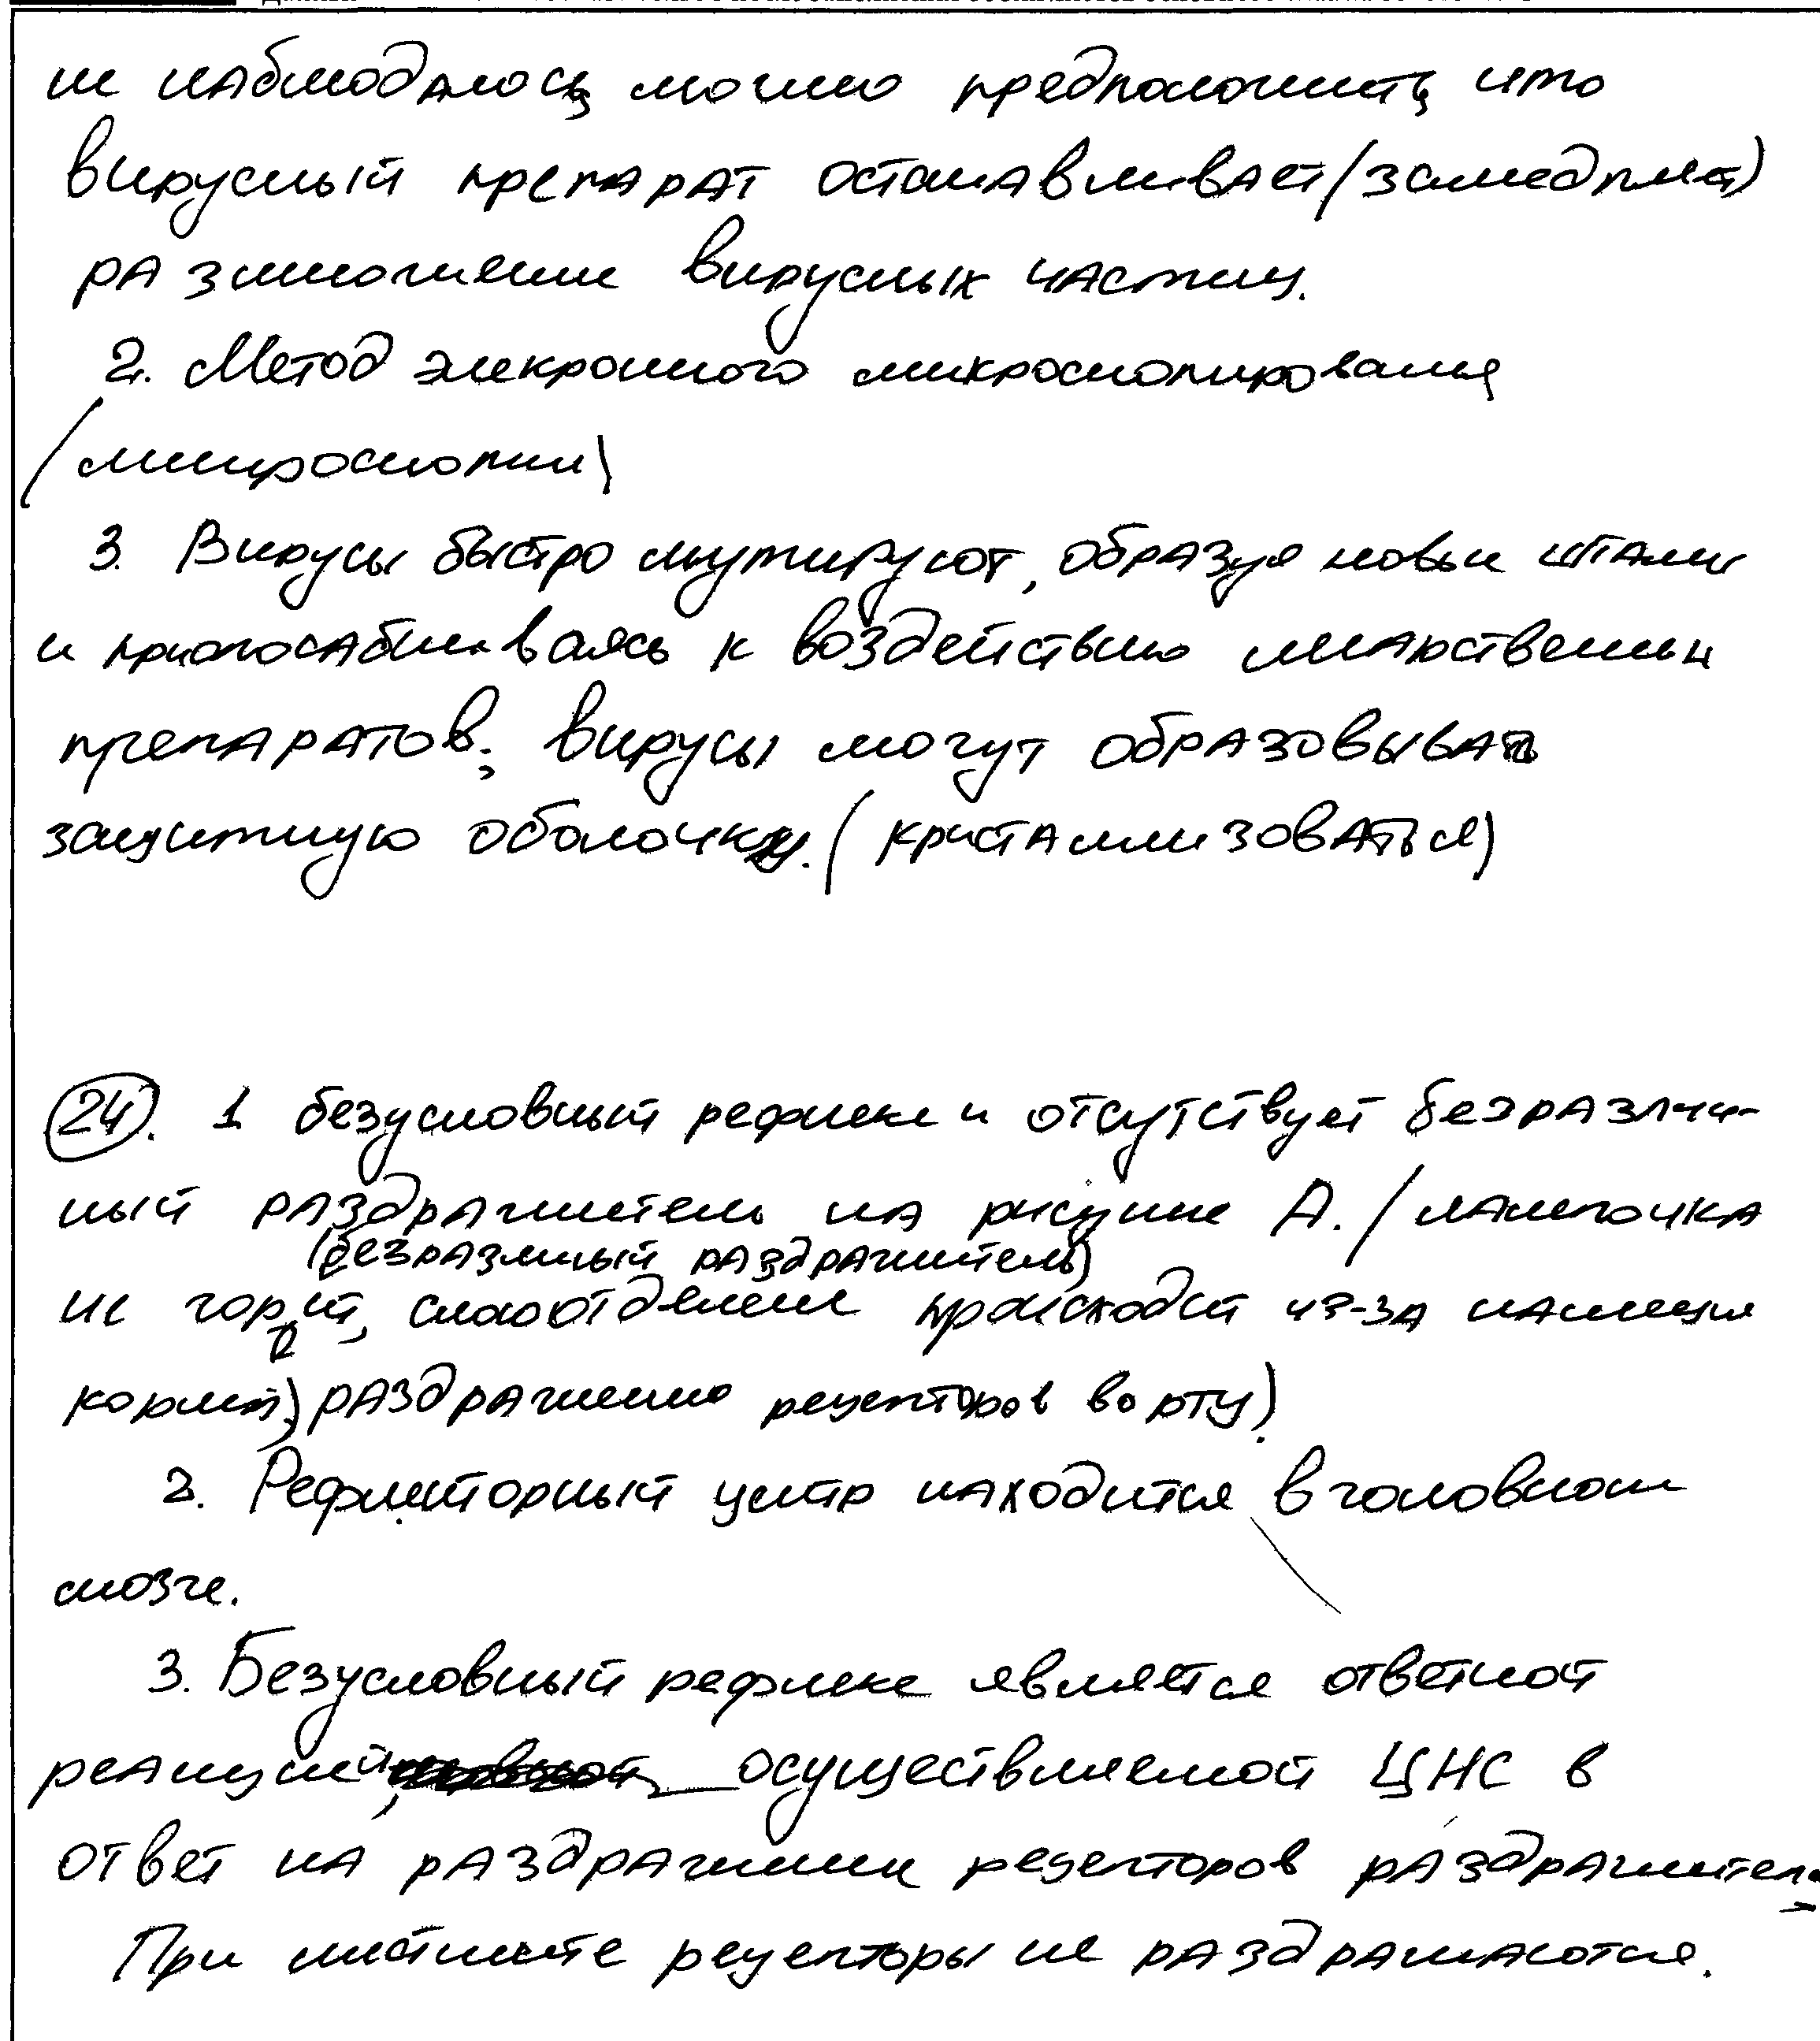 не наблюдалось, можно предположить, что
вирусный препарат останавливает/замедляет)
размножение вирусных частиц.
2. Метод элекронного микроскопирования
(микроскопии)
3. Вирусы быстро мутируют, образуя новые штамы
и приспосабливаясь к воздействию лекарственных
препаратов; вирусы могут образовывать
защитную оболочку. (кристаллизоваться)
24. 1 безусловный рефлекс и отсутствует безразлич-
ный раздражитель на рисунке А. (лампочка
(безразличный раздражитель)
не горит, слюоотделение происходит из-за наличия
корма), раздражение рецепторов во рту).
2. Рефлекторный центр находится в головном
мозге.
3. Безусловный рефлекс является ответной
реакцией, осуществляемой ЦНС в
ответ на раздражение рецепторов раздражителя
При инстинкте рецепторы не раздражаются.